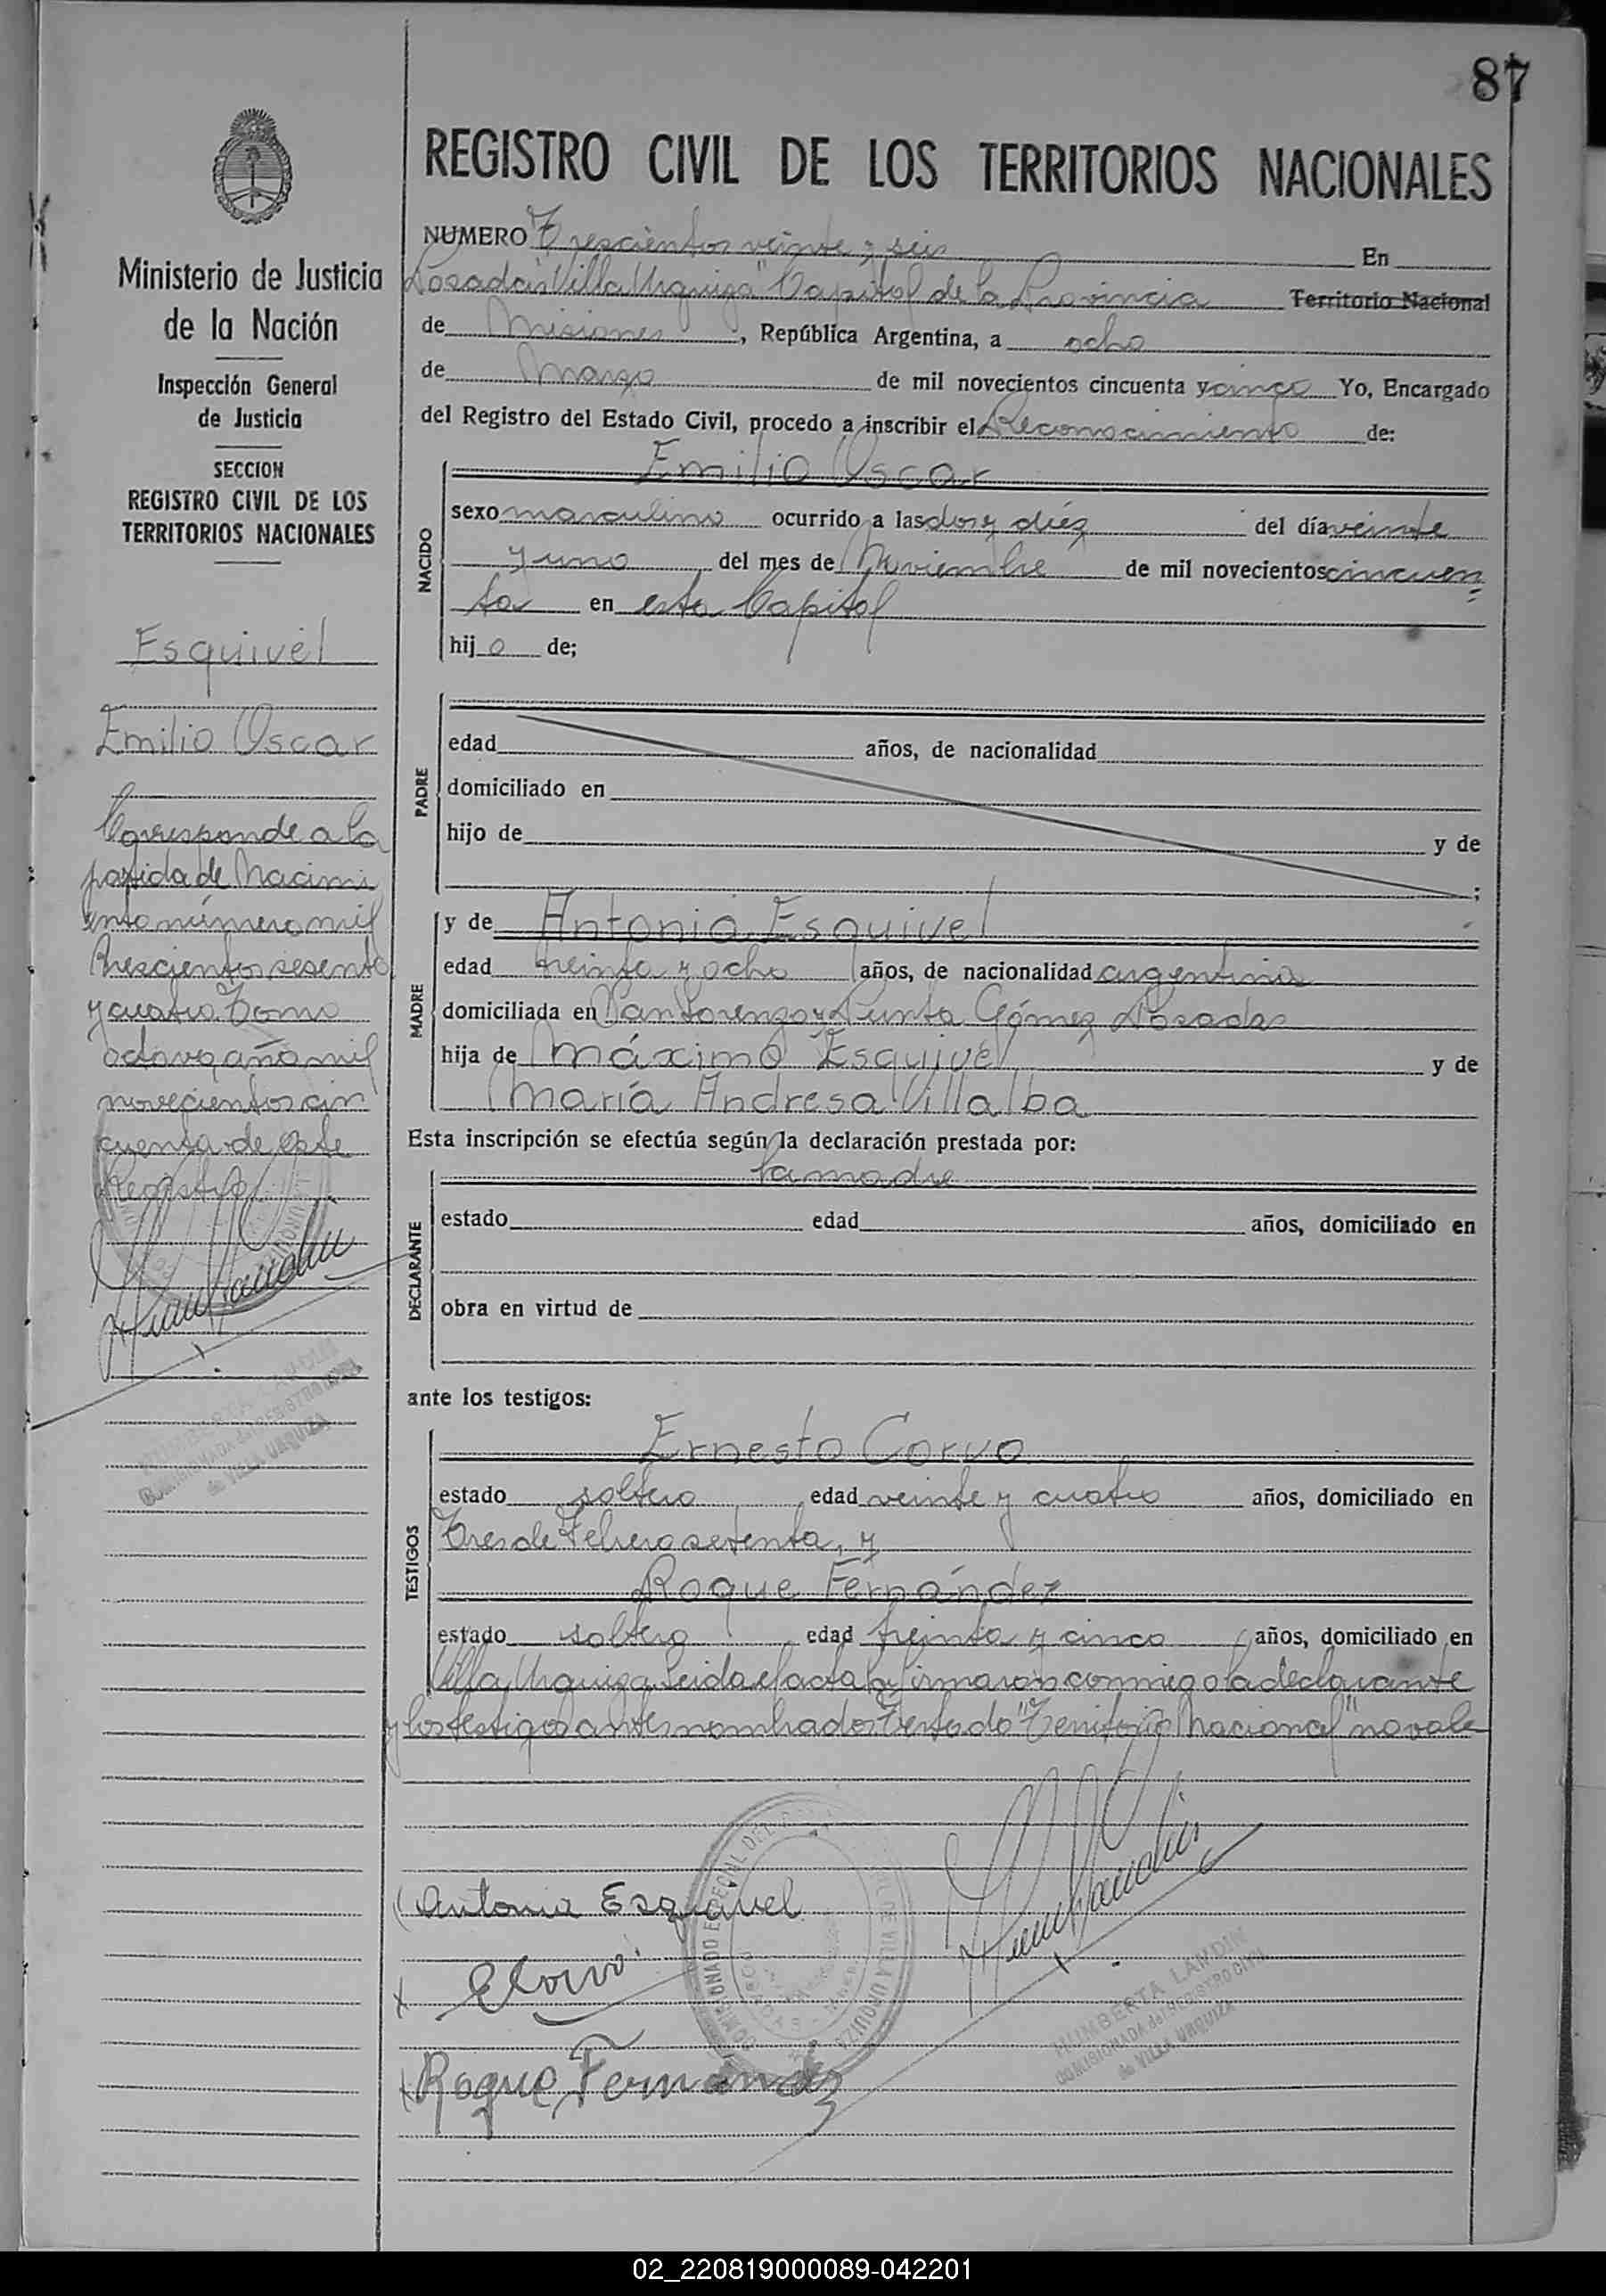 87
REGISTRO CIVIL DE LOS TERRITORIOS NACIONALES
Ministerio de Justicia
de la Nación
Inspección General
de Justicia
SECCION
REGISTRO CIVIL DE LOS
TERRITORIOS NACIONALES
Esquivel
Emilio Oscar
Corresponde a la
partida de Nacimi
ento número mil
trescientos sesenta
y cuatro Tomo
octavo año mil
novecientos cin
cuenta de este
Registro
NUMERO Trescientos veinte y seis En
Posadas "Villa Urquiza" Capital de la Provincia Territorio Nacional
de Misiones, República Argentina, a ocho
de Marzo de mil novecientos cincuenta y cinco Yo, Encargado
del Registro del Estado Civil, procedo a inscribir el Reconocimiento de:
NACIDO
Emilio Oscar
sexo masculino ocurrido a las dos y diéz del día veinte
y uno del mes de Noviembre de mil novecientos cincuen
ta en esta Capital
hijo de;
PADRE
edad años, de nacionalidad
domiciliado en
hijo de y de
;
MADRE
y de Antonia Esquivel
edad treinta y ocho años, de nacionalidad argentina
domiciliada en San Lorenzo y Punta Gómez Posadas
hija de Máximo Esquivel y de
María Andresa Villalba
Esta inscripción se efectúa según la declaración prestada por:
DECLARANTE
la madre
estado edad años, domiciliado en
obra en virtud de
ante los testigos:
TESTIGOS
Ernesto Corvo
estado soltero edad veinte y cuatro años, domiciliado en
Tres de Febrero setenta, y
Roque Fernández
estado soltero edad treinta y cinco años, domiciliado en
Villa Urquiza. Leida el acta la firmaron conmigo la declarante
y los testigos antes nombrados Testado "Territorio Nacional" no vale
Antonia Esquivel
ECorvo
Roque Fernandez
HUMBERTA LANDIN
COMISIONADA del REGISTRO CIVIL
de VILLA URQUIZA
02_220819000089-042201